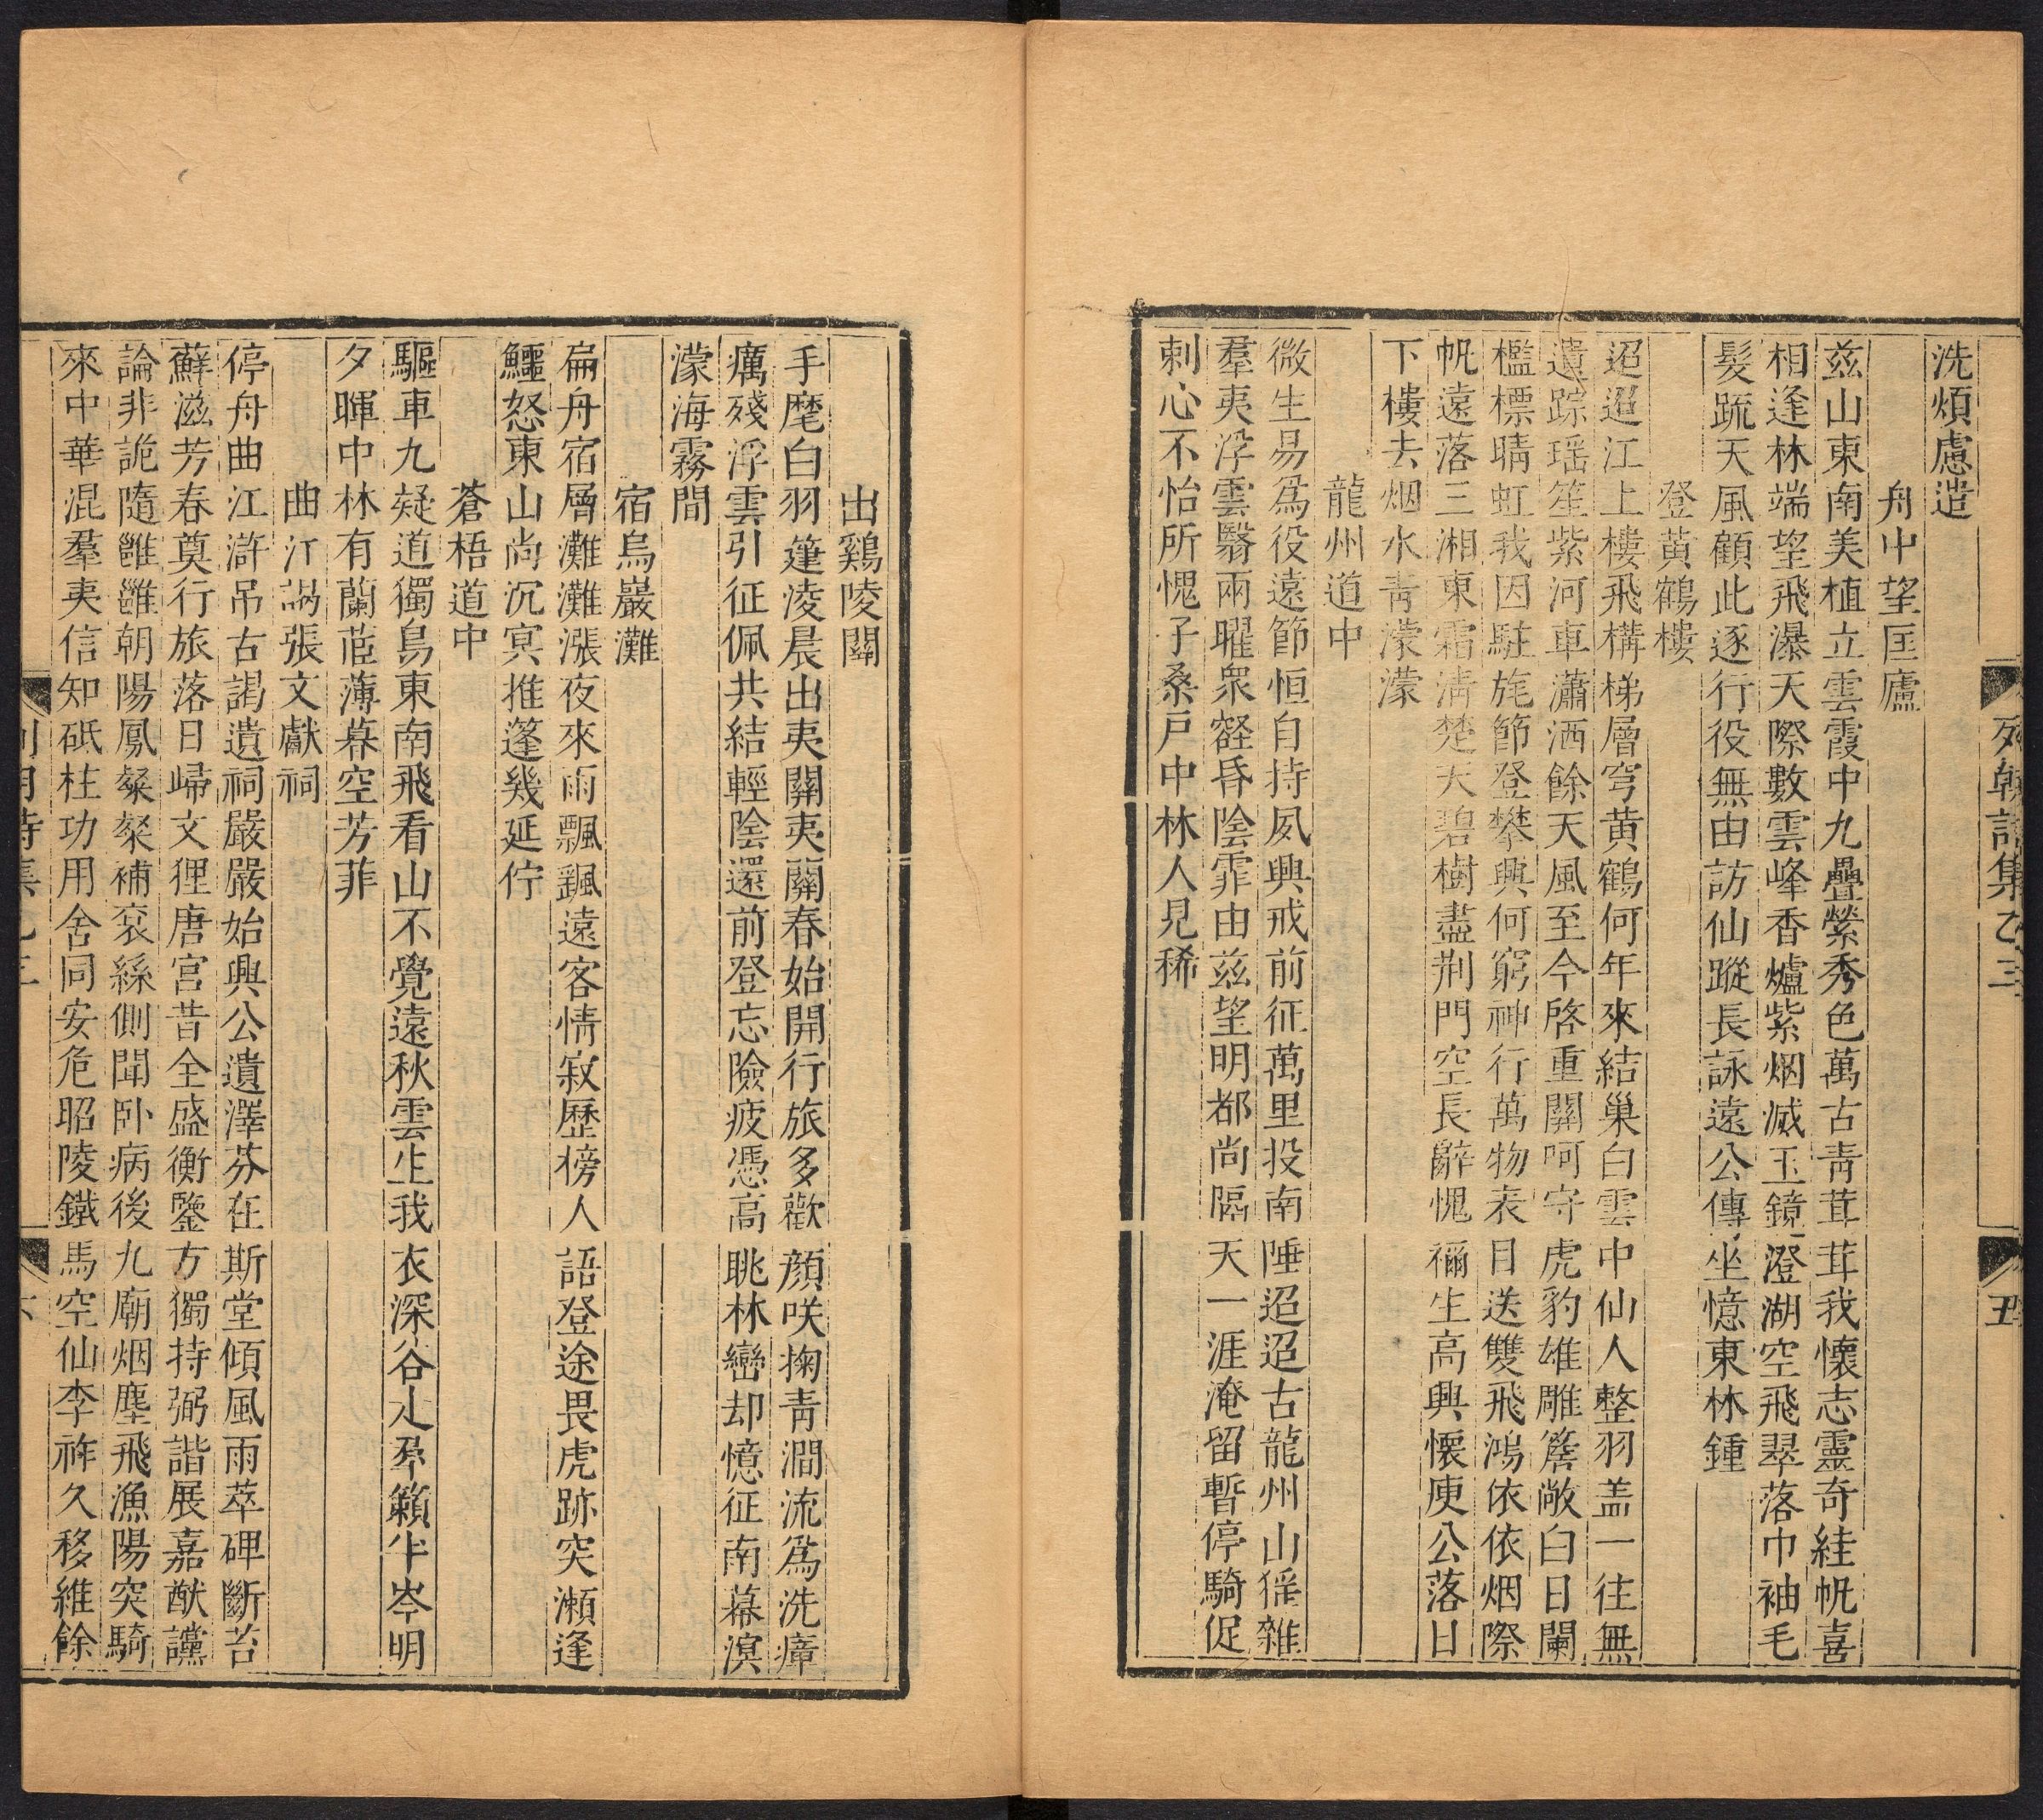 洗煩慮遣
舟中望匡廬
茲山東南美植立雲霞中九疊縈秀色萬古青茸茸我懷志靈奇絓帆喜
相逢林端望飛瀑天際數雲峰香爐紫烟滅玉鏡澄湖空飛翠落巾袖毛
髮疏天風顧此逐行役無由訪仙蹤長詠遠公傳坐憶東林鍾
登黃鶴樓
迢迢江上樓飛構梯層穹黃鶴何年來結巢白雲中仙人整羽盖一往無
遺踪瑶笙紫河車瀟洒餘天風至今啓重關呵守虎豹雄雕簷敞白日闌
檻標晴虹我因駐旄節登攀興何窮神行萬物表目送雙飛鴻依依烟際
帆遠落三湘東霜清楚天碧樹盡荆門空長辭愧禰生高興懷庾公落日
下樓去烟水青濛濛
龍州道中
微生易爲役遠節恒自持夙興戒前征萬里投南陲迢迢古龍州山猺雜
羣夷浮雲翳兩曜衆壑昏陰霏由茲望明都尚隔天一涯淹留暫停騎促
刺心不怡所愧子桑戶中林人見稀
列朝詩集乙三
五
出鷄陵關
手麾白羽箑淩晨出夷關夷關春始開行旅多歡顏咲掬青澗流爲洗瘴
癘殘浮雲引征佩共結輕陰還前登忘險疲憑高眺林巒却憶征南幕溟
濛海霧間
宿烏巖灘
扁舟宿層灘灘漲夜來雨飄飄遠客情寂歷榜人語登途畏虎跡突瀨逢
鱷怒東山尚沉冥推篷幾延佇
蒼梧道中
驅車九疑道獨鳥東南飛看山不覺遠秋雲生我衣深谷上羣籟半岑明
夕暉中林有蘭茝薄暮空芳菲
曲江謁張文獻祠
停舟曲江滸吊古謁遺祠嚴嚴始興公遺澤芬在斯堂傾風雨萃碑斷苔
蘚滋芳春奠行旅落日歸文狸唐宮昔全盛衡鑒方獨持弼諧展嘉猷讜
論非詭隨雝雝朝陽鳳粲粲補衮絲側聞臥病後九廟烟塵飛漁陽突騎
來中華混羣夷信知砥柱功用舍同安危昭陵鐵馬空仙李祚久移維餘
列朝詩集乙三
六